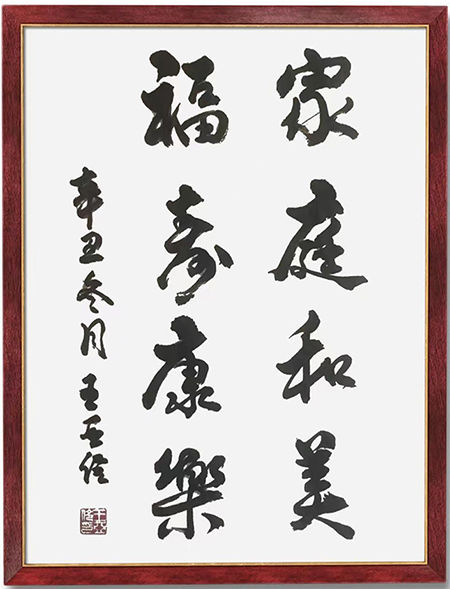 家庭和美
福寿康樂
辛丑冬月王